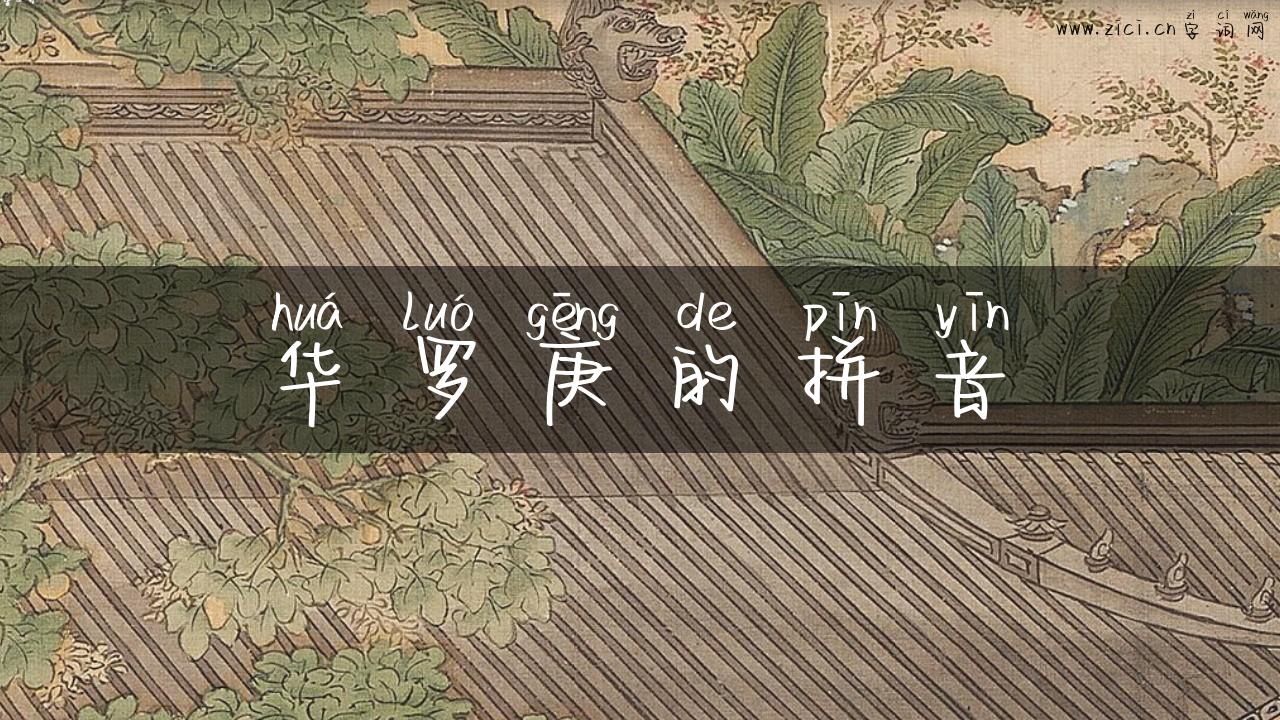 zì cí wǎng
www.zici.cn 字 词 网
huá luó gēng de pīn yīn
华 罗 庚 的 拼 音